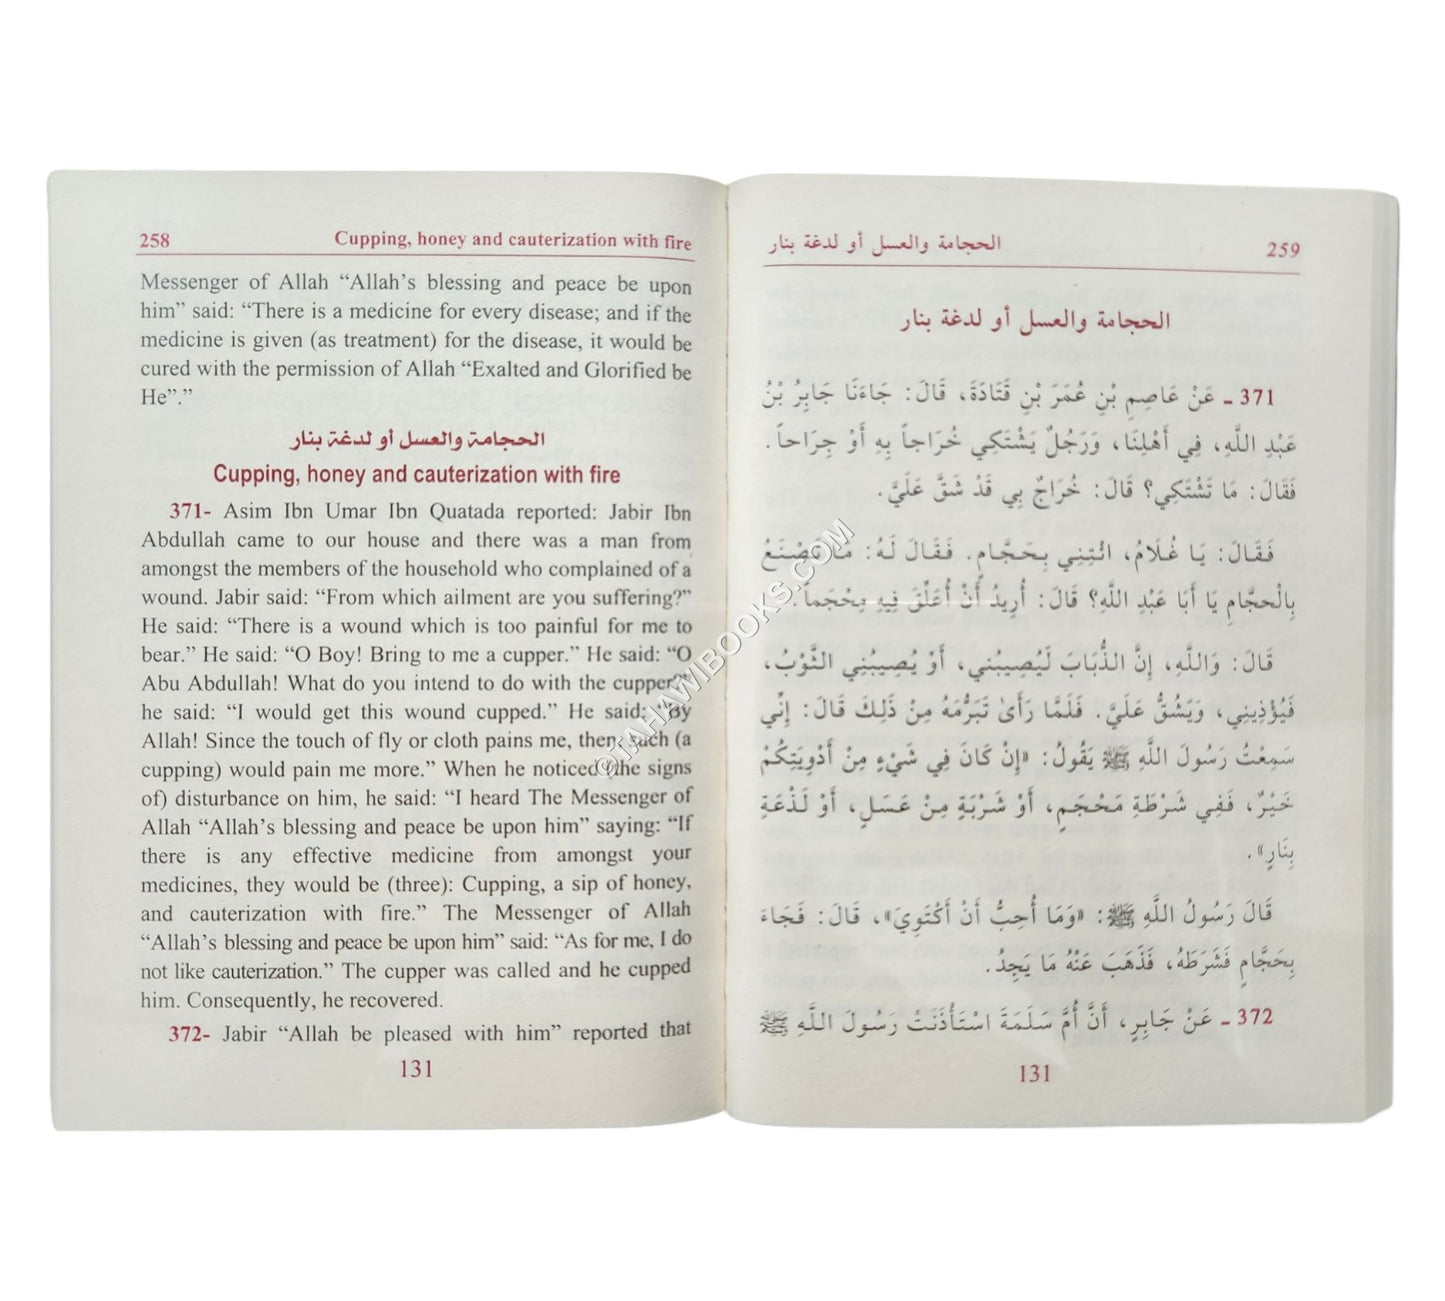 258 Cupping, honey and cauterization with fire
Messenger of Allah “Allah’s blessing and peace be upon
him” said: “There is a medicine for every disease; and if the
medicine is given (as treatment) for the disease, it would be
cured with the permission of Allah “Exalted and Glorified be
He”.”
الحجامة والعسل أو لدغة بنار
Cupping, honey and cauterization with fire
371- Asim Ibn Umar Ibn Quatada reported: Jabir Ibn
Abdullah came to our house and there was a man from
amongst the members of the household who complained of a
wound. Jabir said: “From which ailment are you suffering?”
He said: “There is a wound which is too painful for me to
bear.” He said: “O Boy! Bring to me a cupper.” He said: “O
Abu Abdullah! What do you intend to do with the cupper?”
he said: “I would get this wound cupped.” He said: “By
Allah! Since the touch of fly or cloth pains me, then such (a
cupping) would pain me more.” When he noticed (the signs
of) disturbance on him, he said: “I heard The Messenger of
Allah “Allah’s blessing and peace be upon him” saying: “If
there is any effective medicine from amongst your
medicines, they would be (three): Cupping, a sip of honey,
and cauterization with fire.” The Messenger of Allah
“Allah’s blessing and peace be upon him” said: “As for me, I do
not like cauterization.” The cupper was called and he cupped
him. Consequently, he recovered.
372- Jabir “Allah be pleased with him” reported that
131
الحجامة والعسل أو لدغة بنار 259
الحجامة والعسل أو لدغة بنار
371 ـ عَنْ عَاصِمِ بْنِ عُمَرَ بْنِ قَتَادَةَ، قَالَ: جَاءَنَا جَابِرُ بْنُ
عَبْدِ اللَّهِ، فِي أَهْلِنَا، وَرَجُلٌ يَشْتَكِي خُرَاجاً بِهِ أَوْ جِرَاحاً.
فَقَالَ: مَا تَشْتَكِي؟ قَالَ: خُرَاجٌ بِي قَدْ شَقَّ عَلَيَّ.
فَقَالَ: يَا غُلَامُ، ائْتِنِي بِحَجَّامٍ. فَقَالَ لَهُ: مَا تَصْنَعُ
بِالْحَجَّامِ يَا أَبَا عَبْدِ اللَّهِ؟ قَالَ: أُرِيدُ أَنْ أُعَلِّقَ فِيهِ مِحْجَماً.
قَالَ: وَاللَّهِ، إِنَّ الذُّبَابَ لَيُصِيبُنِي، أَوْ يُصِيبُنِي الثَّوْبُ،
فَيُؤْذِينِي، وَيَشُقُّ عَلَيَّ. فَلَمَّا رَأَىٰ تَبَرُّمَهُ مِنْ ذَلِكَ قَالَ: إِنِّي
سَمِعْتُ رَسُولَ اللَّهِ ﷺ يَقُولُ: «إِنْ كَانَ فِي شَيْءٍ مِنْ أَدْوِيَتِكُمْ
خَيْرٌ، فَفِي شَرْطَةِ مَحْجَمٍ، أَوْ شَرْبَةٍ مِنْ عَسَلٍ، أَوْ لَذْعَةٍ
بِنَارٍ».
قَالَ رَسُولُ اللَّهِ ﷺ: «وَمَا أُحِبُّ أَنْ أَكْتَوِيَ»، قَالَ: فَجَاءَ
بِحَجَّامٍ فَشَرَطَهُ، فَذَهَبَ عَنْهُ مَا يَجِدُ.
372 ـ عَنْ جَابِرٍ، أَنَّ أُمَّ سَلَمَةَ اسْتَأْذَنَتْ رَسُولَ اللَّهِ ﷺ
131
©TAHAWIBOOKS.COM